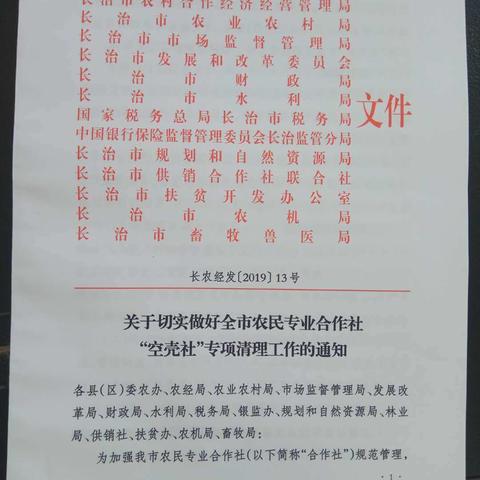 长治市农村合作经济经营管理局
长治市农业农村局
长治市市场监督管理局
长治市发展和改革委员会
长治市财政局
长治市水利局
国家税务总局长治市税务局
中国银行保险监督管理委员会长治监管分局
长治市规划和自然资源局
长治市供销合作社联合社
长治市扶贫开发办公室
长治市农机局
长治市畜牧兽医局
文件
长农经发[2019]13号
关于切实做好全市农民专业合作社
“空壳社”专项清理工作的通知
各县(区)委农办、农经局、农业农村局、市场监督管理局、发展改
革局、财政局、水利局、税务局、银监办、规划和自然资源局、林业
局、供销社、扶贫办、农机局、畜牧局:
为加强我市农民专业合作社(以下简称“合作社”)规范管理,
·1·